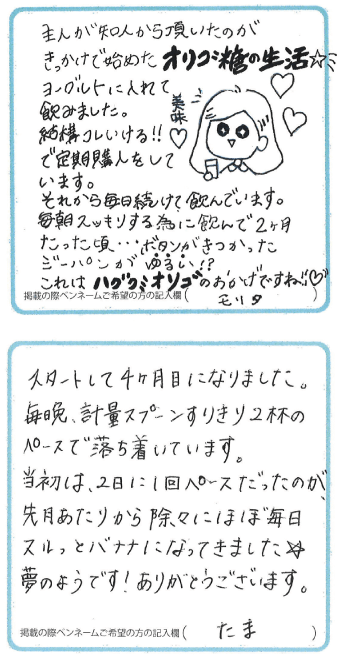 主人が知人から頂いたのが
きっかけで始めた オリゴ糖の生活☆ミ
ヨーグルトに入れて
飲みました。
美味♡
結構コレいける!!
で定期購入をして
います。
それから毎日続けて飲んでいます。
毎朝スッキリする為に飲んで2ヶ月
たった頃…ボタンがきつかった
ジーパンがゆるい!?
これは ハグクミオリゴのおかげですね!!♡
掲載の際ペンネームご希望の方の記入欄( モリタ )
スタートして4ヶ月目になりました。
毎晩、計量スプーンすりきり2杯の
ペースで落ち着いています。
当初は、2日に1回ペースだったのが、
先月あたりから除々にほぼ毎日
スルっとバナナになってきました☆
夢のようです!ありがとうございます。
掲載の際ペンネームご希望の方の記入欄( たま )